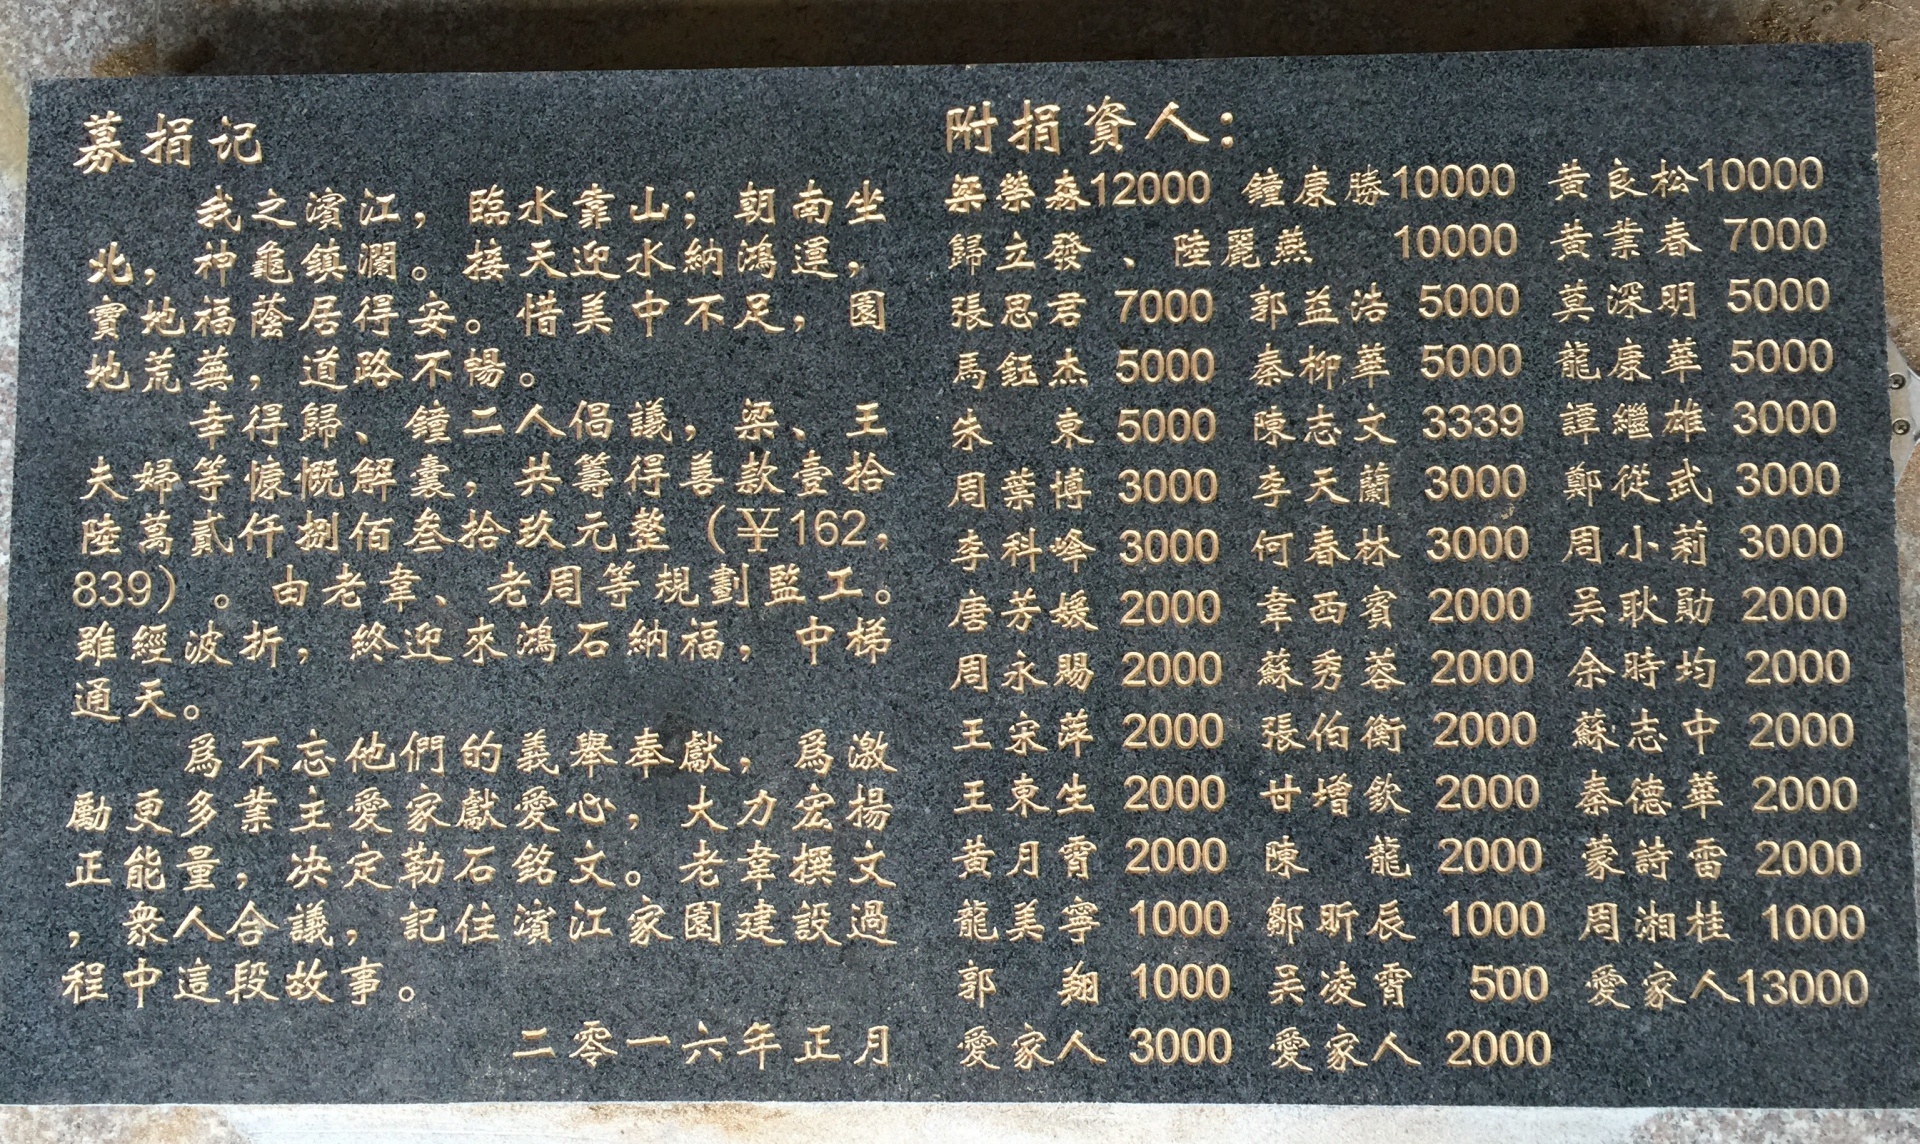 募捐记
我之濱江，臨水靠山；朝南坐
北，神龜鎮瀾。接天迎水納鴻運，
寶地福蔭居得安。惜美中不足，園
地荒蕪，道路不暢。
幸得歸、鐘二人倡議，梁、王
夫婦等慷慨解囊，共籌得善款壹拾
陸萬貳仟捌佰叁拾玖元整（￥162，
839）。由老韋、老周等規劃監工。
雖經波折，終迎來鴻石納福，中梯
通天。
爲不忘他們的義舉奉獻，爲激
勵更多業主愛家獻愛心，大力宏揚
正能量，决定勒石銘文。老韋撰文
，衆人合議，記住濱江家園建設過
程中這段故事。
二零一六年正月
附捐資人：
梁榮森12000 鐘康勝10000 黃良松10000
歸立發、陸麗燕 10000 黃業春 7000
張思君 7000 郭益浩 5000 莫深明 5000
馬鈺杰 5000 秦柳華 5000 龍康華 5000
朱東 5000 陳志文 3339 譚繼雄 3000
周葉博 3000 李天蘭 3000 鄭從武 3000
李科峰 3000 何春林 3000 周小莉 3000
唐芳媛 2000 韋西賓 2000 吴耿勛 2000
周永賜 2000 蘇秀蓉 2000 余時均 2000
王宋萍 2000 張伯衡 2000 蘇志中 2000
王東生 2000 甘增欽 2000 秦德華 2000
黃月霄 2000 陳龍 2000 蒙詩雷 2000
龍美寧 1000 鄒昕辰 1000 周湘桂 1000
郭翔 1000 吴凌霄 500 愛家人13000
愛家人 3000 愛家人 2000